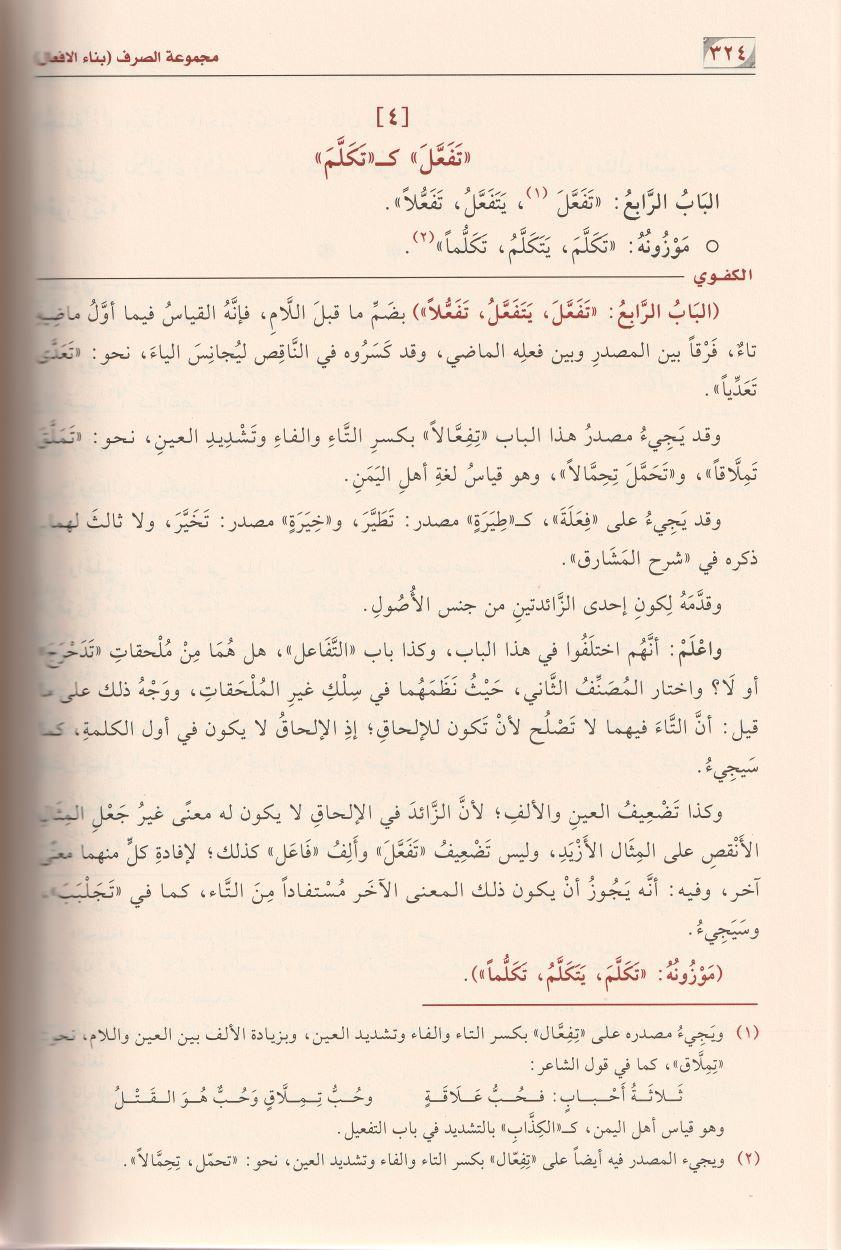 ٣٢٤
مجموعة الصرف (بناء الافعال)
[٤]
«تَفَعَّلَ» كـ«تَكَلَّمَ»
البَابُ الرَّابِعُ: «تَفَعَّلَ (١)، يَتَفَعَّلُ، تَفَعُّلاً».
○ مَوْزُونُهُ: «تَكَلَّمَ، يَتَكَلَّمُ، تَكَلُّماً»(٢).
الكفوي
(البَابُ الرَّابِعُ: «تَفَعَّلَ، يَتَفَعَّلُ، تَفَعُّلاً») بضَمِّ ما قبلَ اللَّامِ، فإنَّهُ القياسُ فيما أوَّلُ ماضِيهِ
تاءٌ، فَرْقاً بين المصدرِ وبين فعلِه الماضي، وقد كَسَرُوه في النَّاقِصِ ليُجانِسَ الياءَ، نحو: «تَعَدَّى
تَعَدِّياً».
وقد يَجِيءُ مصدرُ هذا البابِ «تِفِعَّالاً» بكسرِ التَّاءِ والفاءِ وتَشْدِيدِ العينِ، نحو: «تَمَلَّقَ
تَمِلَّاقاً»، و«تَحَمَّلَ تِحِمَّالاً»، وهو قياسُ لغةِ أهلِ اليَمَنِ.
وقد يَجِيءُ على «فِعَلَةَ»، كـ«طِيَرَةٍ» مصدر: تَطَيَّرَ، و«خِيَرَةٍ» مصدر: تَخَيَّرَ، ولا ثالثَ لهما.
ذكره في «شرح المَشَارق».
وقدَّمَهُ لِكونِ إحدى الزَّائدتينِ من جنس الأُصُولِ.
واعْلَمْ: أنَّهُم اختلَفُوا في هذا الباب، وكذا باب «التَّفَاعل»، هل هُمَا مِنْ مُلْحقاتِ «تَدَحْرَجَ»
أو لَا؟ واختار المُصَنِّفُ الثَّاني، حَيْثُ نَظَمَهُما في سِلْكِ غيرِ المُلْحَقاتِ، ووَجْهُ ذلك على ما
قيل: أنَّ التَّاءَ فيهما لا تَصْلُح لأنْ تَكون للإلحاقِ؛ إذِ الإلحاقُ لا يكون في أول الكلمةِ، كما
سَيَجِيءُ.
وكذا تَضْعِيفُ العينِ والألفِ؛ لأنَّ الزَّائدَ في الإلحاقِ لا يكون له معنًى غيرُ جَعْلِ المِثَالِ
الأَنْقصِ على المِثَال الأَزْيَدِ، وليس تَضْعِيفُ «تَفَعَّلَ» وأَلِفُ «فَاعَل» كذلك؛ لإفادةِ كلٍّ منهما معنًى
آخر، وفيه: أنَّه يَجُوزُ أنْ يكون ذلك المعنى الآخَر مُسْتفاداً مِنَ التَّاء، كما في «تَجَلْبَبَ»،
وسَيَجِيءُ.
(مَوْزُونُهُ: «تَكَلَّمَ، يَتَكَلَّمُ، تَكَلُّماً»).
(١) ويَجِيءُ مصدره على «تِفِعَّال» بكسر التاء والفاء وتشديد العين، وبزيادة الألف بين العين واللام، نحو:
«تِمِلَّاق»، كما في قول الشاعر:
ثَــلاثَــةُ أَحْــبــابٍ: فــحُــبُّ عَــلَاقَــةٍ وحُــبُّ تِــمِــلَّاقٍ وَحُــبٌّ هُــوَ الــقَــتْــلُ
وهو قياس أهل اليمن، كـ«الكِذَّابِ» بالتشديد في باب التفعيل.
(٢) ويجيء المصدر فيه أيضاً على «تِفِعّال» بكسر التاء والفاء وتشديد العين، نحو: «تحمّل، تِحِمَّالاً».